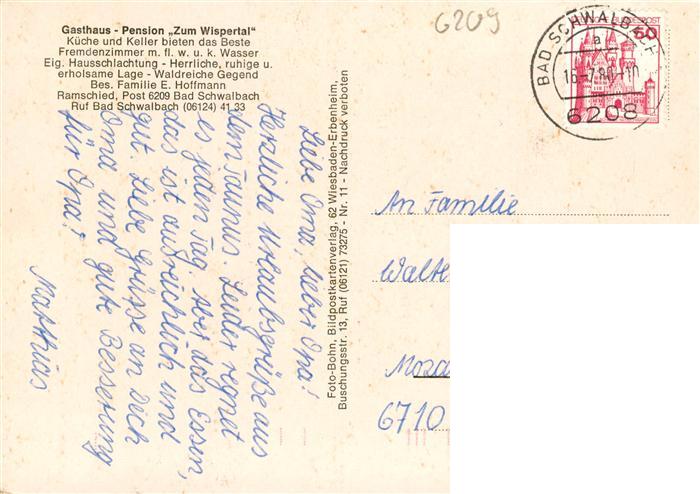 Gasthaus - Pension „Zum Wispertal"
Küche und Keller bieten das Beste
Fremdenzimmer m. fl. w. u. k. Wasser
Eig. Hausschlachtung - Herrliche, ruhige u.
erholsame Lage - Waldreiche Gegend
Bes. Familie E. Hoffmann
Ramschied, Post 6209 Bad Schwalbach
Ruf Bad Schwalbach (06124) 41 33
6209
BAD SCHWALBACH
a
16.-7.80
6208
BUNDESPOST
50
Liebe Oma, lieber Opa!
Herzliche Urlaubsgrüße aus
dem Taunus. Leider regnet
es jeden Tag. Aber das Essen,
das ist aufreichlich und
gut. Liebe Grüsse an Dich
Oma und gute Besserung
für Opa!
Matthias
Foto-Bohn, Bildpostkartenverlag, 62 Wiesbaden-Erbenheim,
Buschungsstr. 13, Ruf (06121) 73275 - Nr. 11 - Nachdruck verboten
An Familie
Walte
Moza
6710